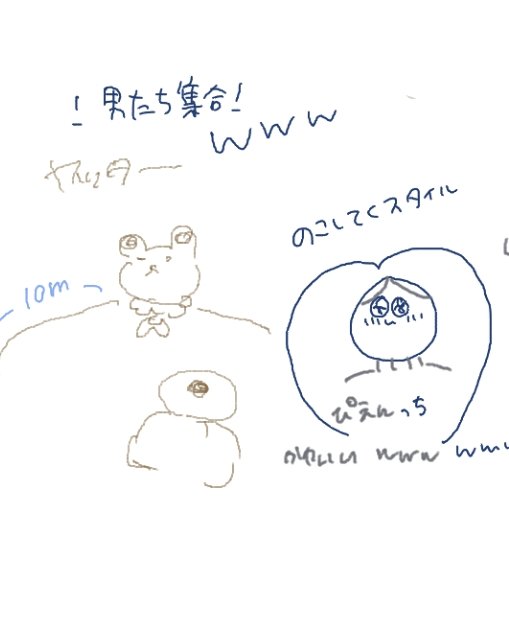 ！男たち集合！
www
のこしてくスタイル
10m
ぴえんっち
かわいい www